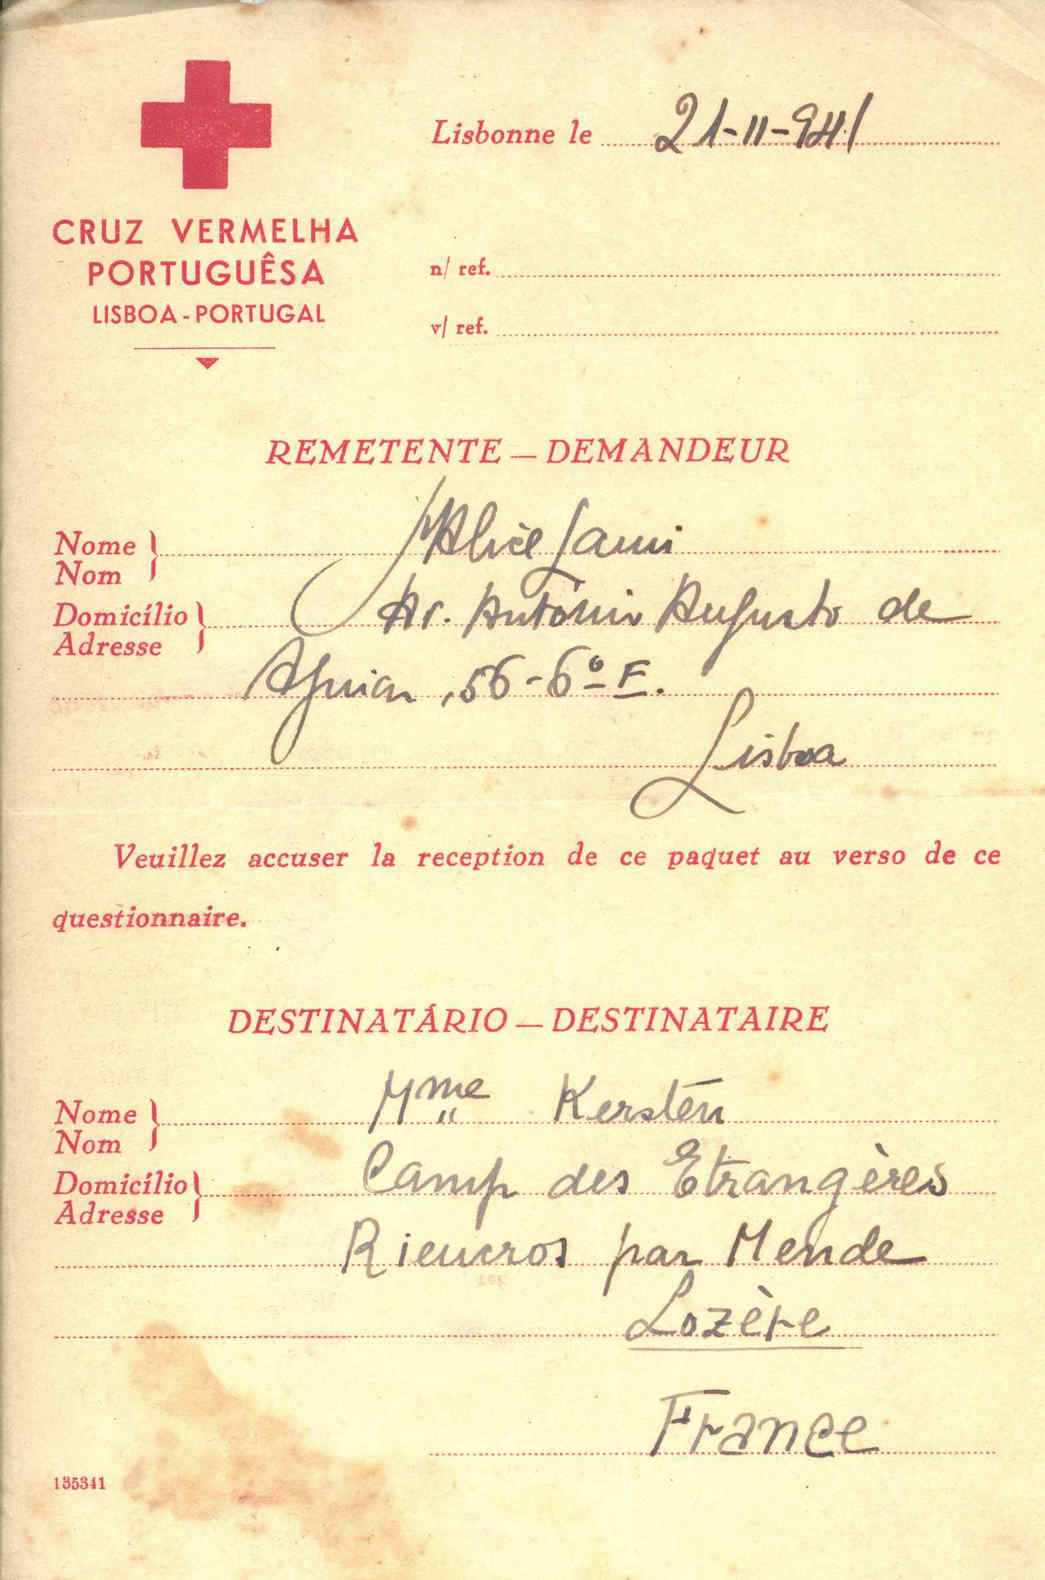 CRUZ VERMELHA
PORTUGUÊSA
LISBOA - PORTUGAL
Lisbonne le 21-11-941
n/ ref.
v/ ref.
REMETENTE — DEMANDEUR
Nome
Nom
Alice Lami
Domicílio
Adresse
Av. António Augusto de
Aguiar, 56-6º E.
Lisboa
Veuillez accuser la reception de ce paquet au verso de ce
questionnaire.
DESTINATÁRIO — DESTINATAIRE
Nome
Nom
Mme Kersten
Domicílio
Adresse
Camp des Etrangères
Rieucros par Mende
Lozère
France
135341